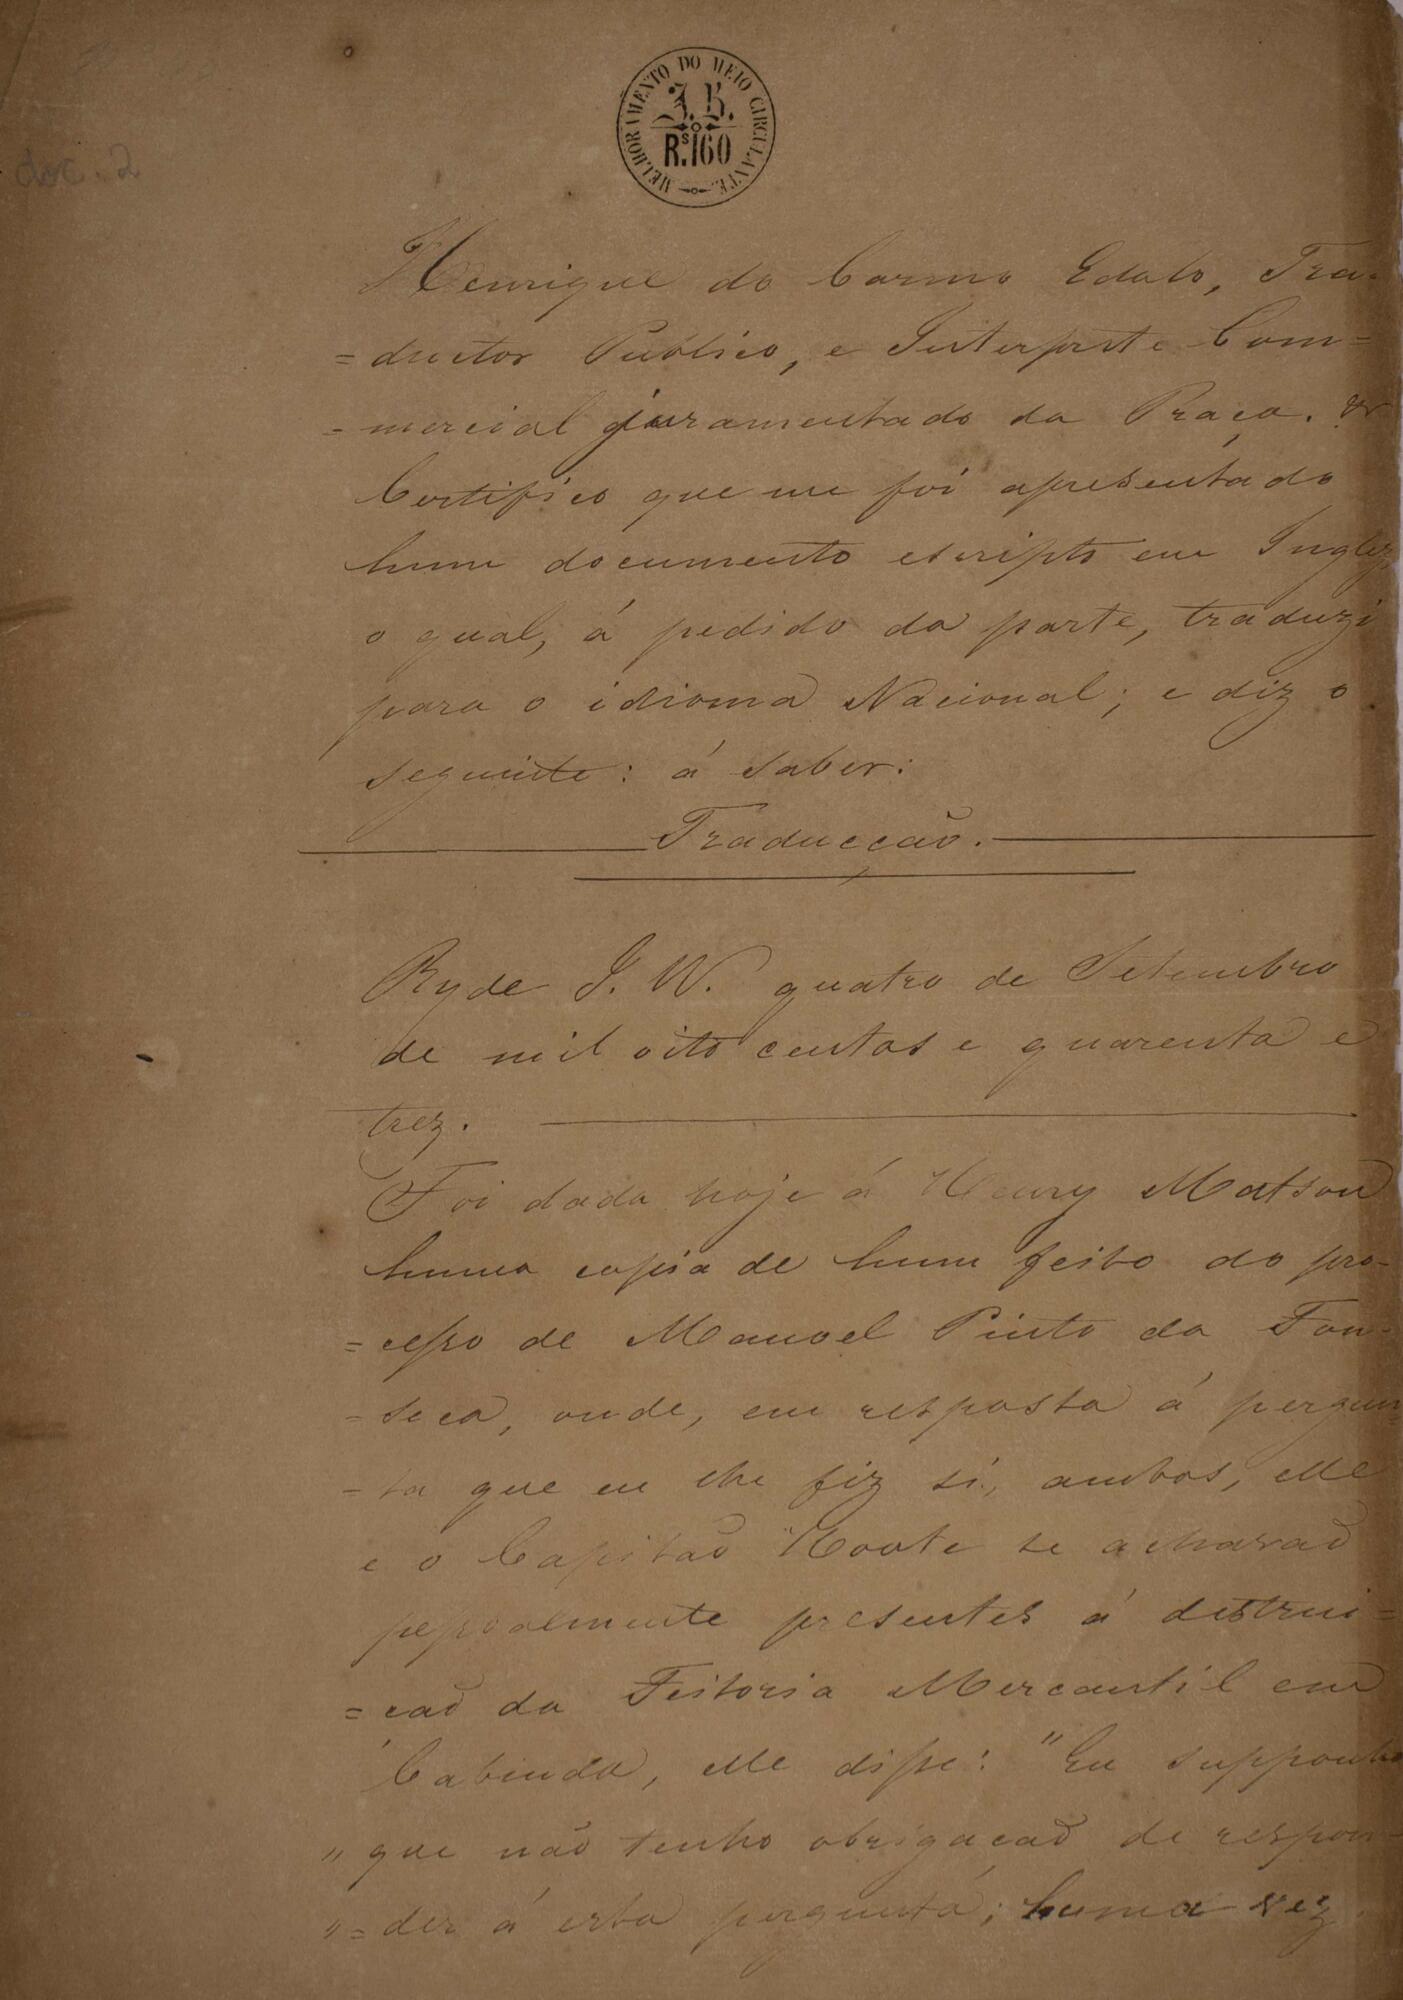 doc. 2
MELHORAMENTO DO MEIO CIRCULANTE
J. B.
Rs. 160
Henrique do Carmo Edolo, Tra-
=ductor Publico, e Interprete Com=
=mercial juramentado da Praça. &
Certifico que me foi apresentado
hum documento escripto em Inglez
o qual, á pedido da parte, traduzi
para o idioma Nacional; e diz o
seguinte: á saber:
Traducção.
Ryde I. W. quatro de Setembro
de mil oito centos e quarenta e
trez.
Foi dada hoje á Henry Matson
huma copia de hum feito do pro-
=cesso de Manoel Pinto da Fon-
=seca, onde, em resposta á pergun-
=ta que eu lhe fiz si, ambos, elle
e o Capitaõ Foote se acharaõ
pessoalmente presentes á destrui=
=caõ da Feitoria Mercantil em
Cabinda, elle disse: "Eu supponho
" que não tenho obrigacaõ de respon-
"=der á esta pergunta; huma vez